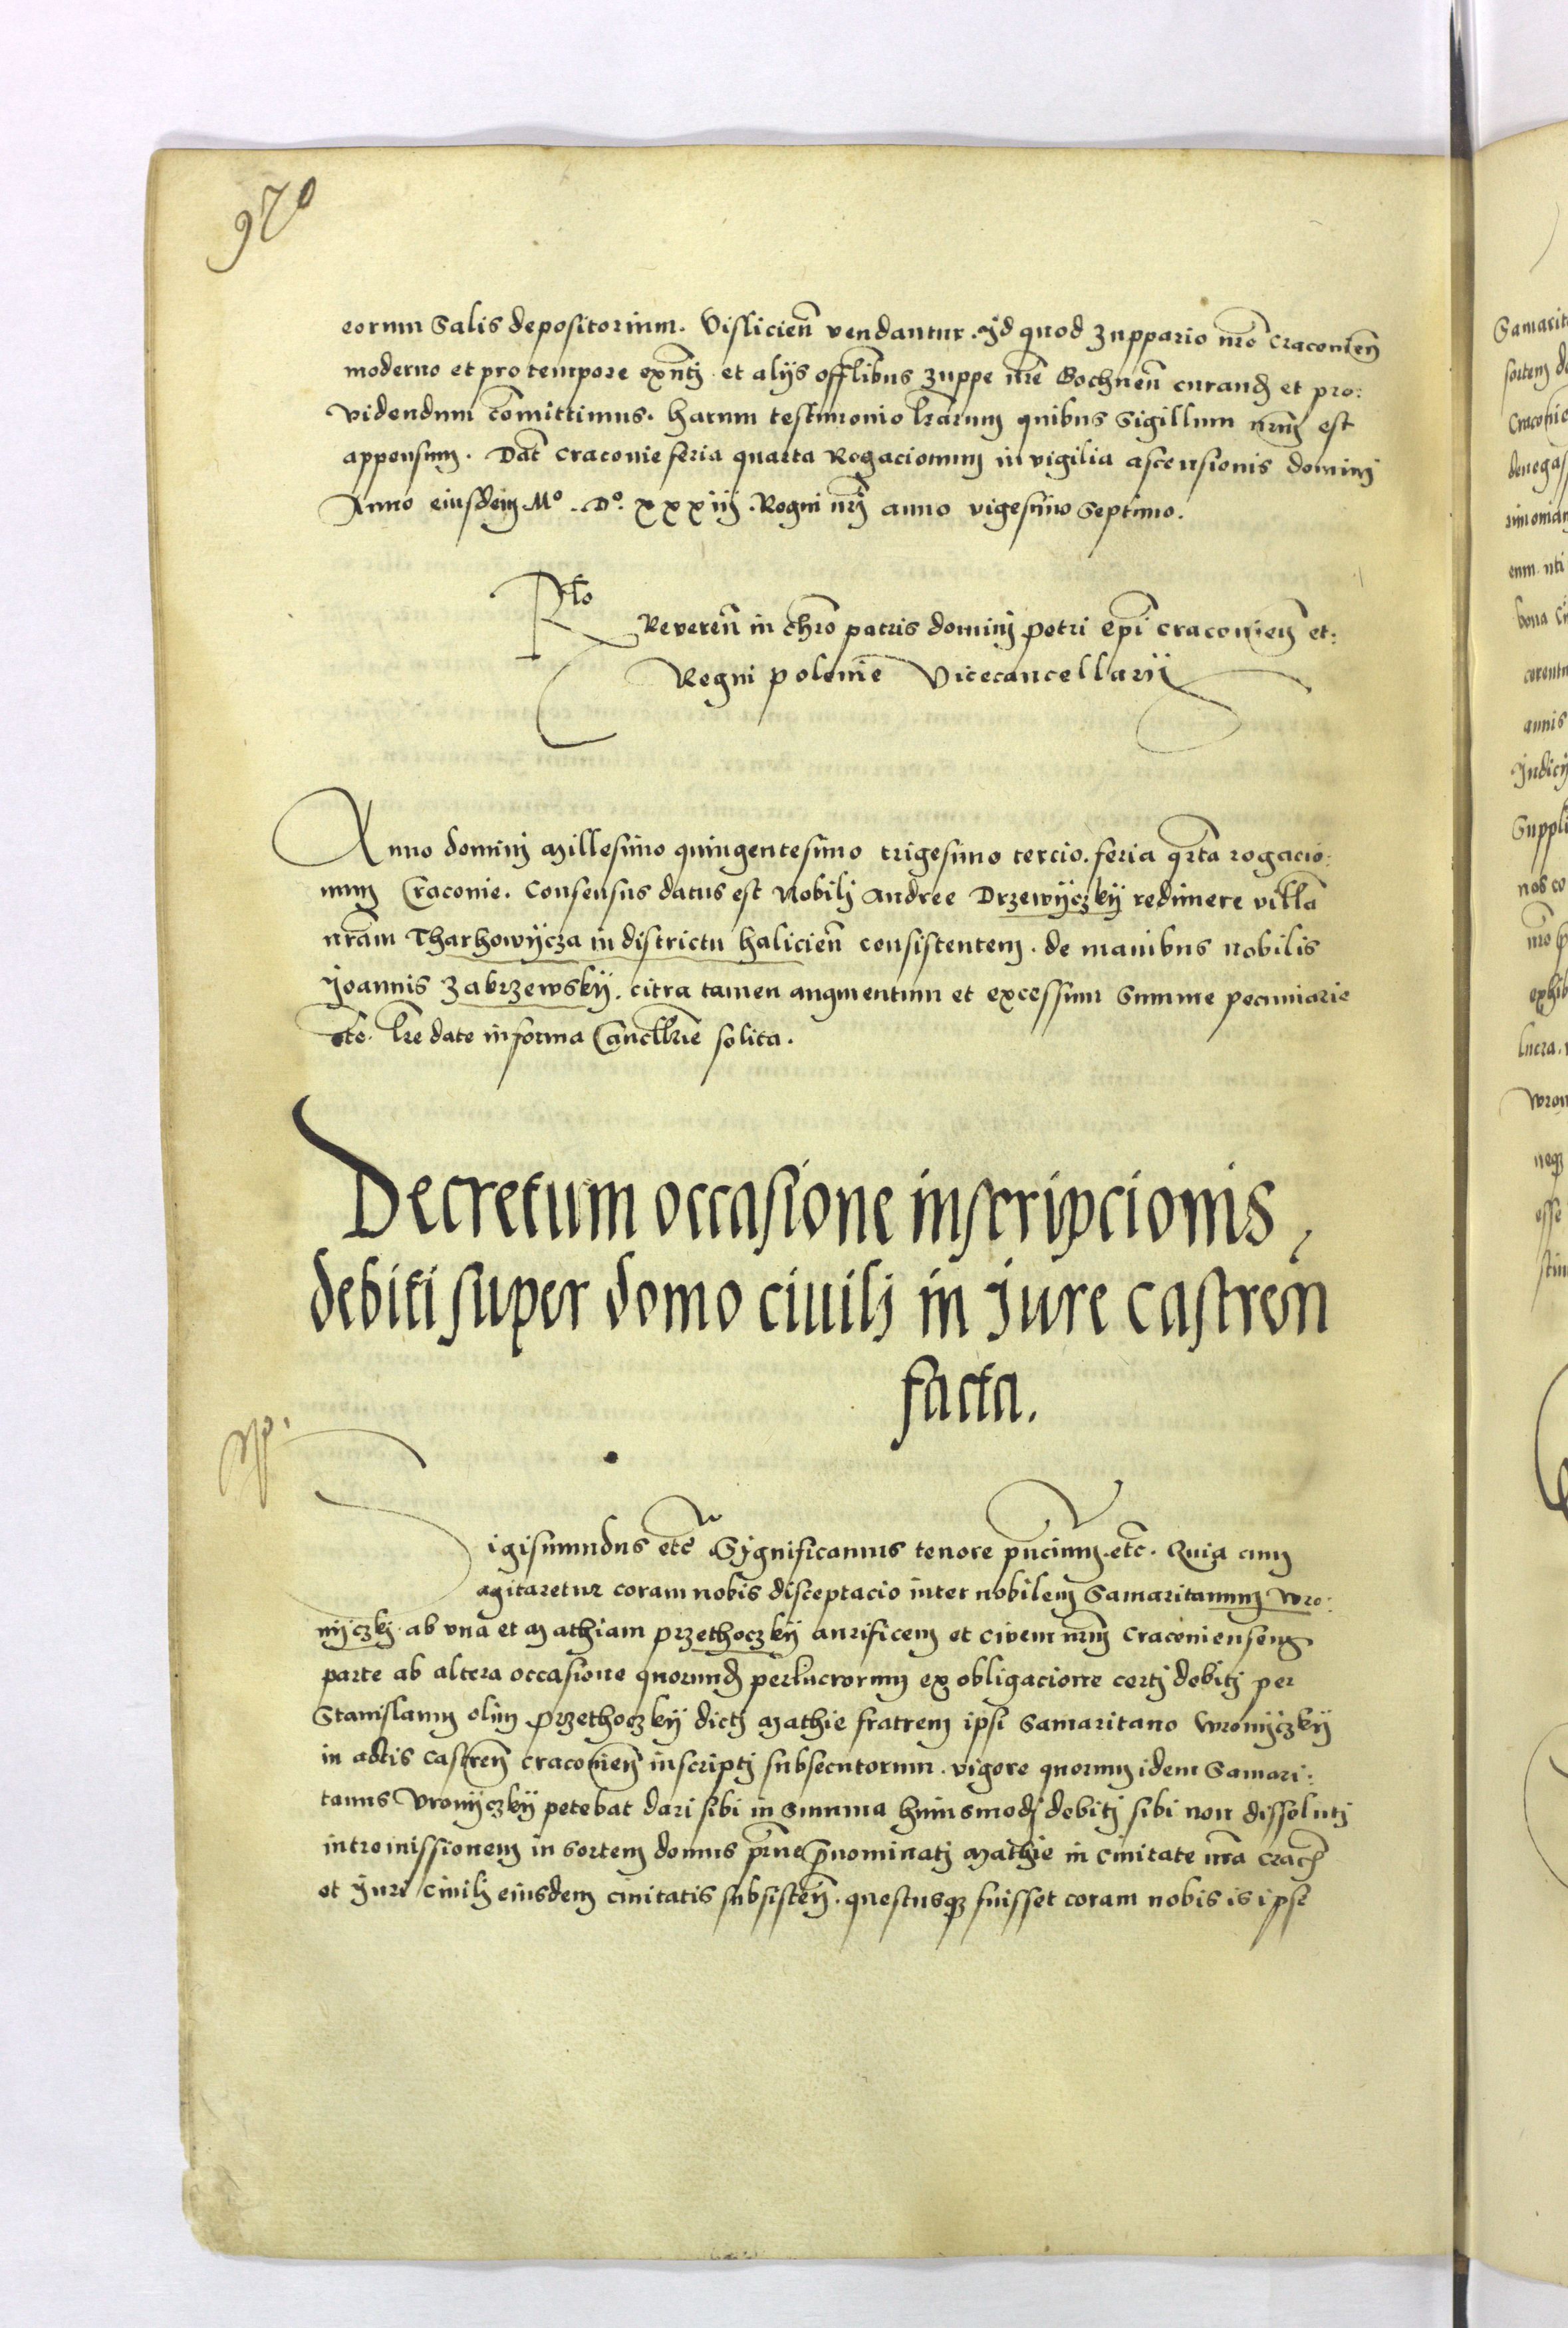 970
eorum Salis depositorium. Vislicien̄ vendantur. Jd quod zuppario nr̄o Cracouien̄
moderno et pro tempore exn̄tj et alijs offl̄ibus zuppe nr̄e Bochnen̄ curand̄ et pro:
videndum com̄ittimus. harum testimonio lr̄arum quibus Sigillum nr̄um est
appensum. Dat̄ Craconie feria quarta Rogacionum in vigilia ascensionis dominj
Anno eiusdem Mº. Dº. xxxiij. Regni nr̄j anno vigesimo Septimo.
R̄to
Reveren̄ in chr̄o patris dominj Petri ep̄i Craconien̄ et:
Regni polonie Vicecancellarij
Anno dominj Millesimo quingentesimo trigesimo tercio. feria qr̄ta rogacio:
num Craconie. Consensus datus est Nobilj Andree Drzewyczky redimere vill̄a
nr̄am Tharhowycza in districtu halicien̄ consistentem. de manibus nobilis
Joannis Zabrzewsky. citra tamen augmentum et excessum Summe pecuniarie
etc. lr̄e date in forma Canclr̄ie solita.
Decretum occasione inscripcionis
debiti super domo ciuilj in jure castren̄
facta.
Sigismundus etc̄ Significamus tenore pn̄cium. etc̄. Quia cum
agitaretur coram nobis disceptacio inter nobilem Samaritanum Wro:
nyczkj ab vna et Mathiam przethoczky aurificem et civem nr̄um Craconiensem
parte ab altera occasione quorund̄ perlucrorum ex obligacione certj debitj per
Stanislaum olim Przethoczky dictj Mathie fratrem ipsi Samaritano Wronyczky
in actis castren̄ craconien̄ inscriptj subsecutorum. vigore quorum idem Samari:
tanus Vronyczky petebat dari sibi in Summa huiusmodj debitj sibi non dissolutj
intromissionem in sortem domus p̄nominatj Mathie in Ciuitate nr̄a Crac̄
et jure Ciuilj eiusdem ciuitatis subsisten̄. questusqȝ fuisset coram nobis is ipse